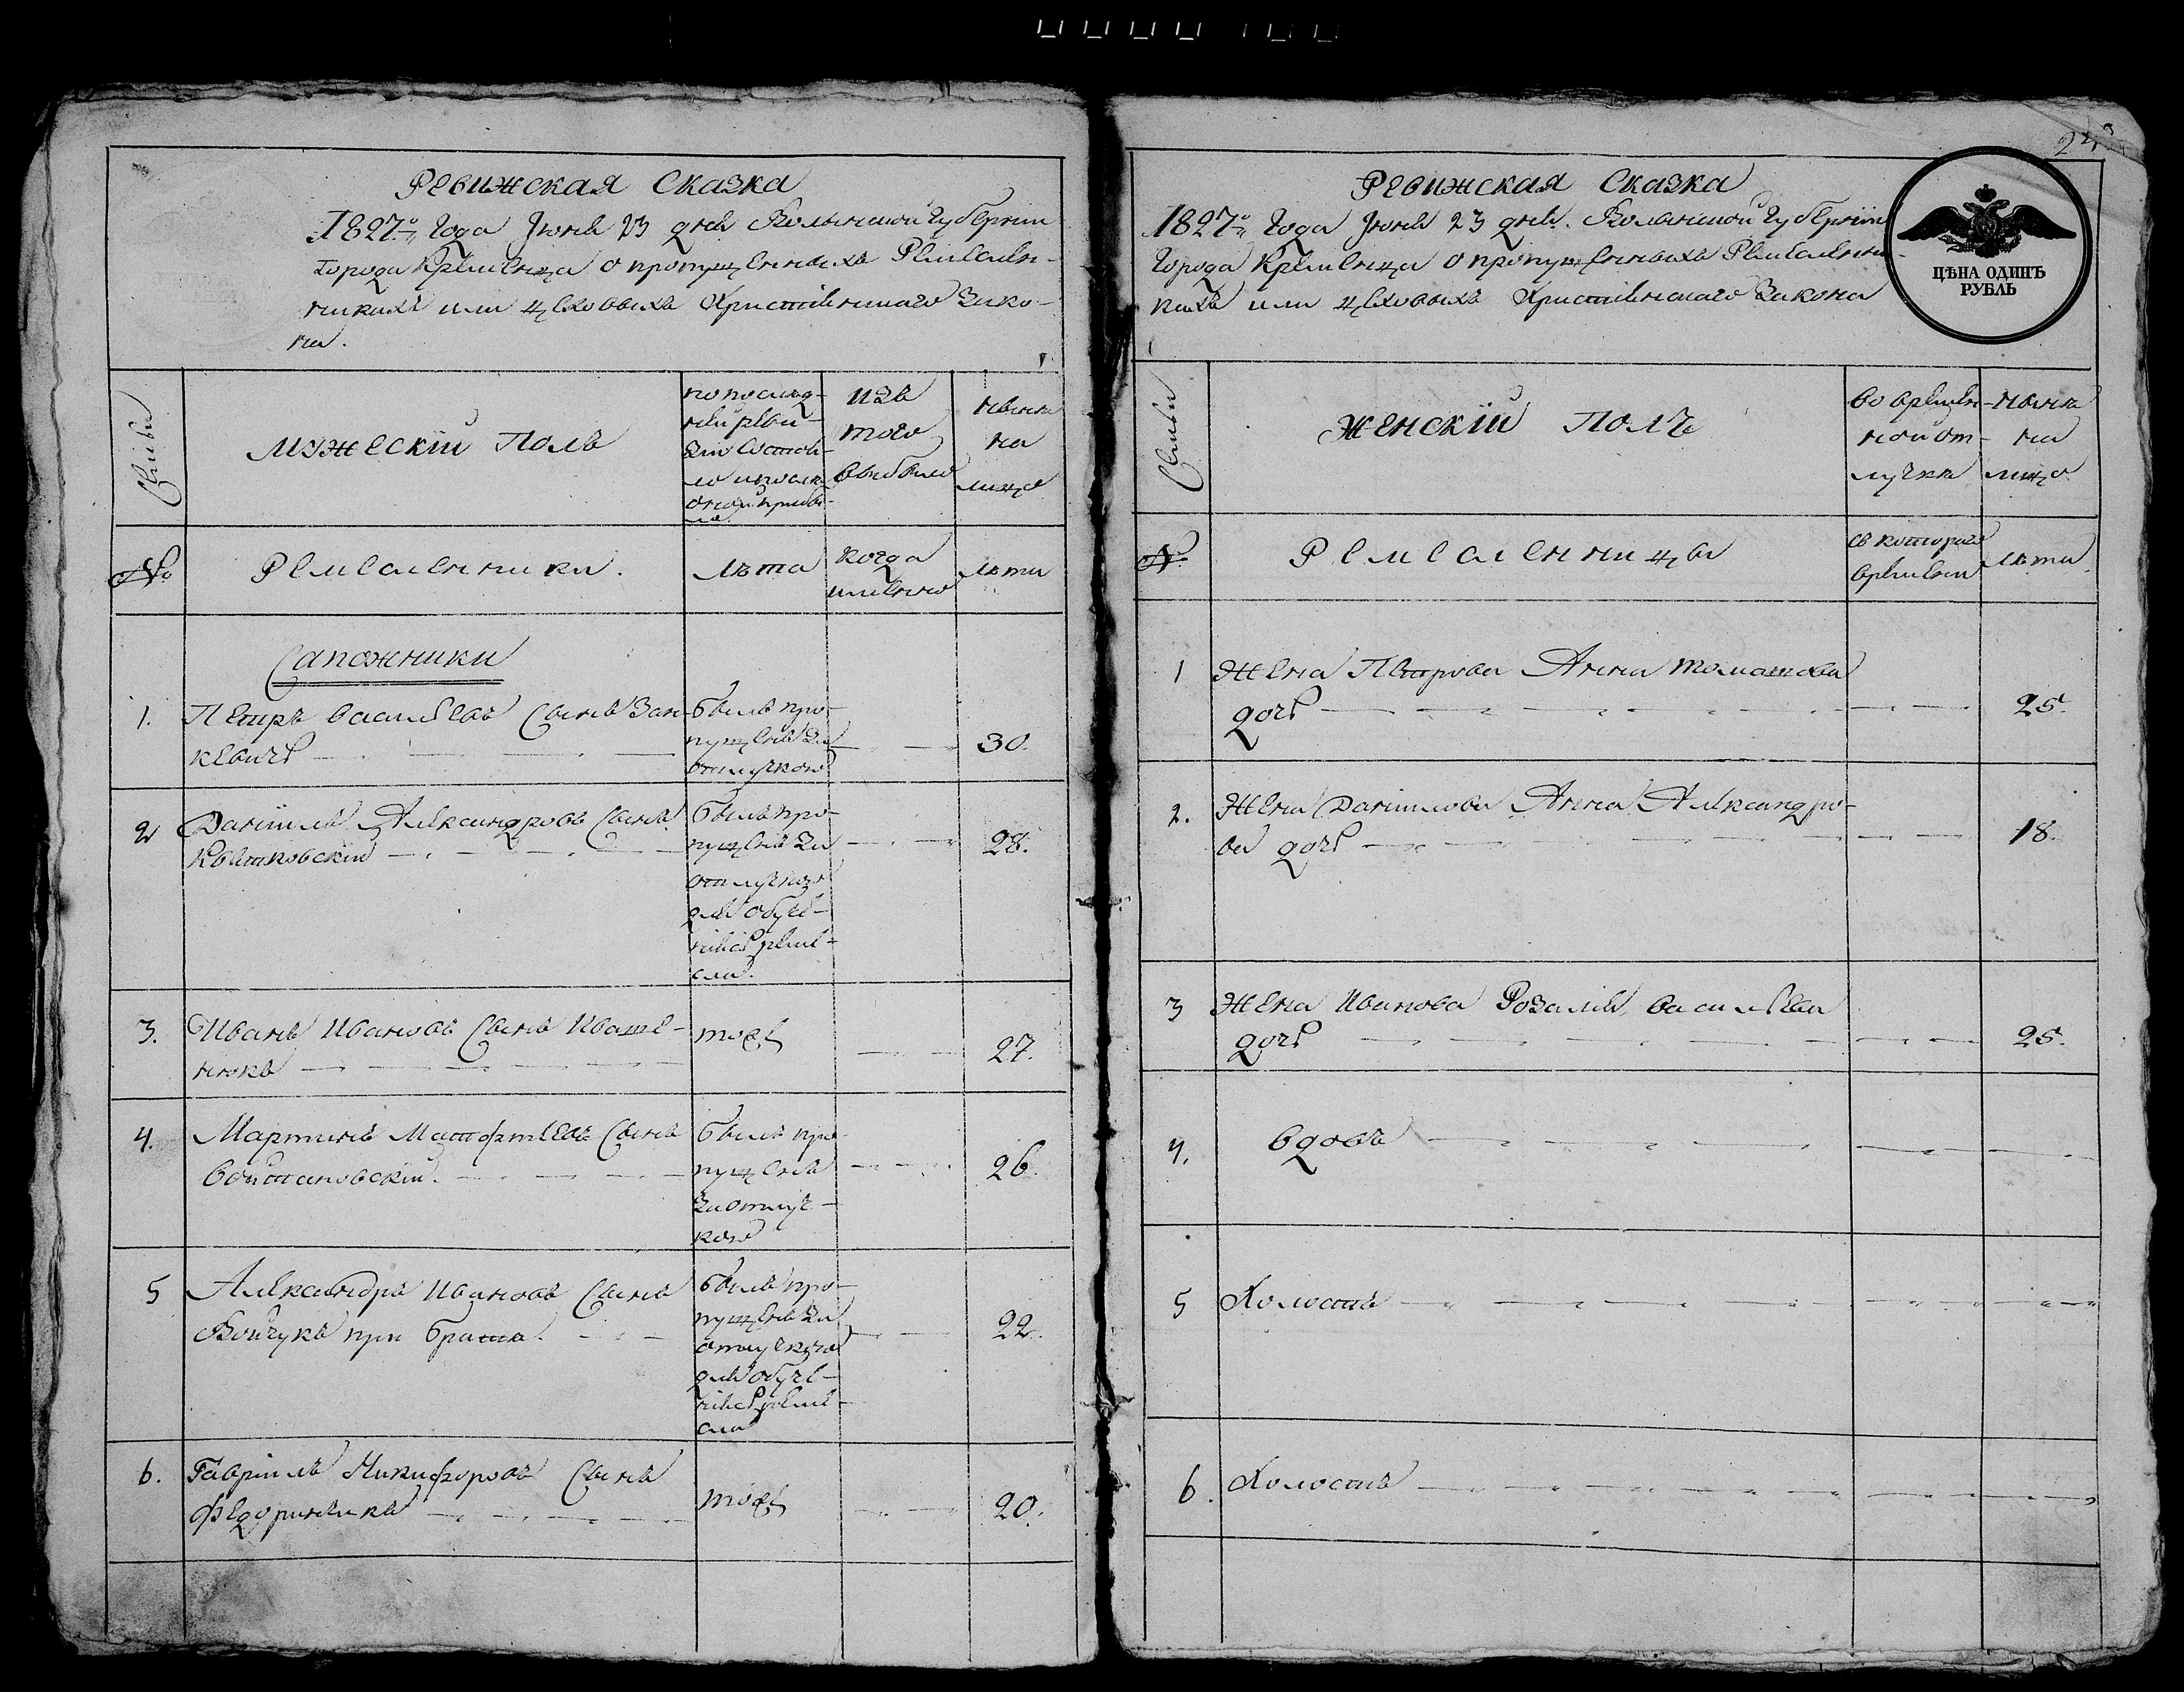 Ревижская Сказка
1827го Года Июня 23 дня Волынской Губернiи
города Кременца о пропущенныхъ Ремеслен-
никахъ или цеховыхъ Христiянскаго Зако-
на.
Семьи
Мужескiй Полъ
по послѣд-
ней реви-
зiи состоя-
ло и после
оной прибы-
ло.
изъ
того
выбыло
нынѣ
на
лицо
№
Ремесленники.
Лѣта
когда
именно
лѣта
Сапожники
1. Петръ Васильевъ Сынъ Зан-
кевичь
былъ про-
пущенъ за
отлучкою
30.
2 Данiилъ Александровъ Сынъ
Квятковскiй
былъ про-
пущенъ за
отлучкою
для обуче-
нiя реме-
сла.
28.
3. Иванъ Ивановъ Сынъ Иваше-
нюкъ
тожъ
27.
4. Мартинъ Матфтеевъ Сынъ
Войтановскiй.
былъ про-
пущенъ
за отлуч-
кою
26.
5 Александръ Ивановъ Сынъ
Войчукъ при братѣ.
былъ про-
пущенъ за
отлучкою
для обуче-
нiя реме-
сла
22.
6. Гаврiилъ Никифоровъ Сынъ
тожъ
20.
Ревижская Сказка
1827го Года Июня 23 дня. Волынской Губернiи
Города Кременца о пропущенныхъ Ремесленни-
кахъ или цеховыхъ Христiянскаго Закона
ЦѢНА ОДИНЪ
РУБЛЬ
Семьи
Женскiй Полъ
во времен-
ной от-
лучкѣ
нынѣ
на
лицо.
№
Ремесленницы
съ котораго
времени
лѣта.
1 Жена Петрова Анна Томашова
дочь
25.
2. Жена Данiилова Анна Александро-
ва дочь
18.
3 Жена Иванова Розалiя Васильева
дочь
25.
4. вдовъ
5 Холостъ
6. Холостъ